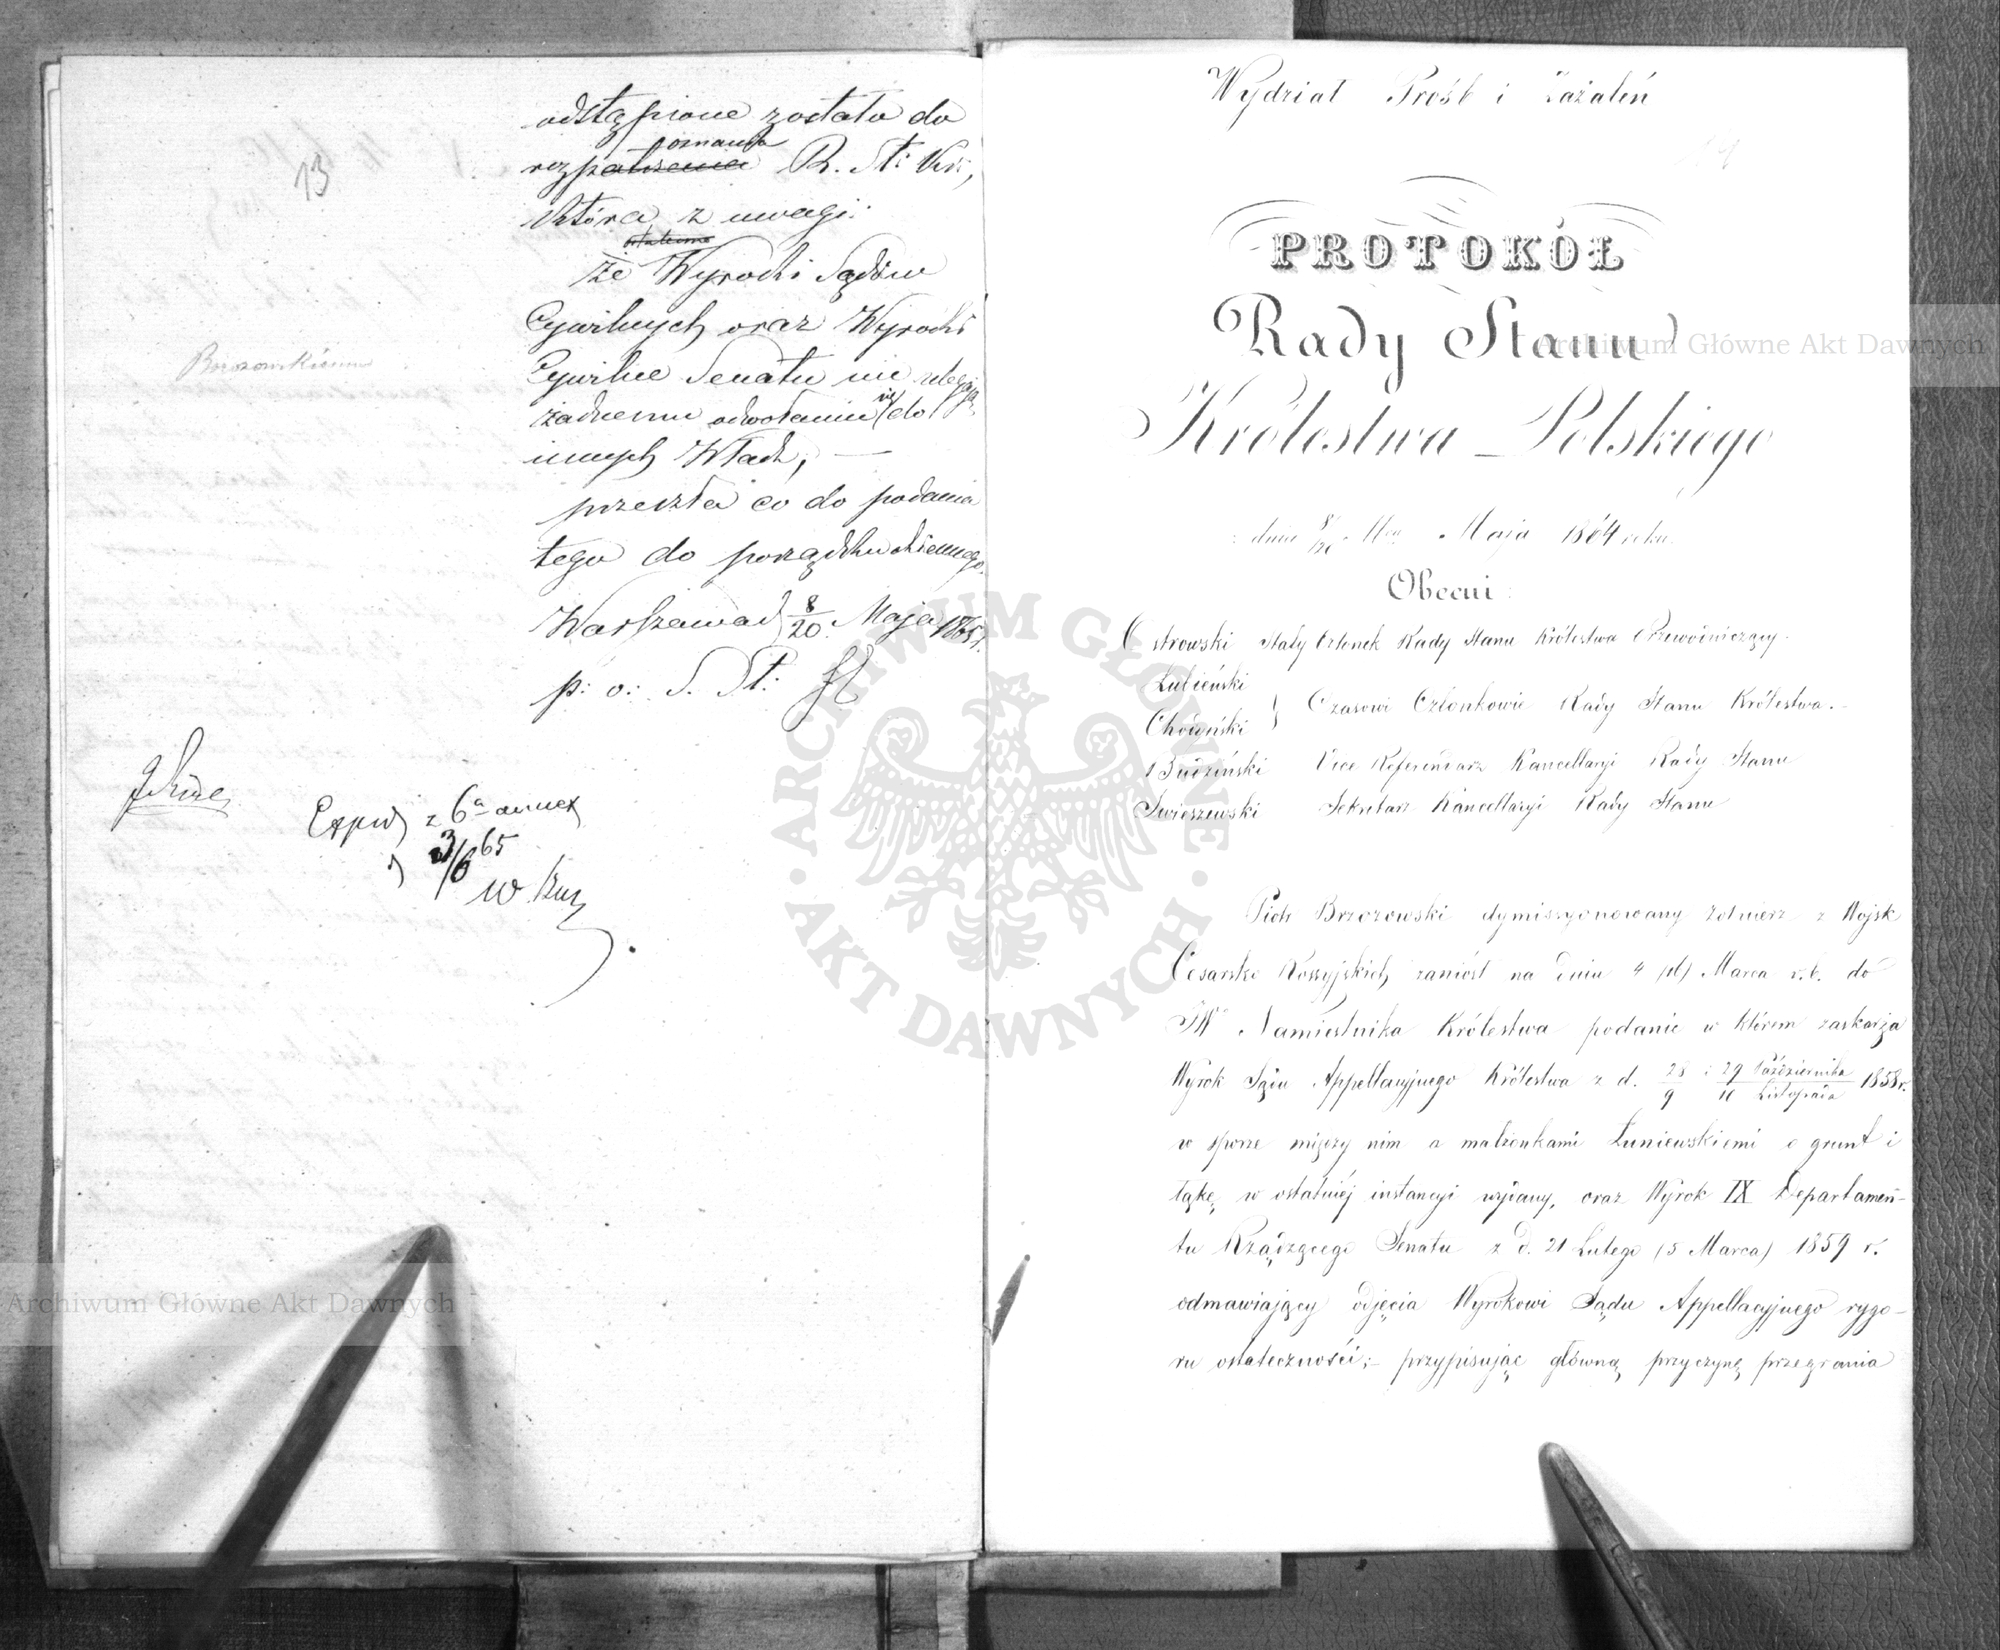 13
odstąpione zostało do
rozpoznania R. St: Kr:,
która z uwagi:
że Wyroki Sądów
Cywilnych oraz Wyroki
Cywilne Senatu nie ulegają
żadnemu odwołaniu się do
innych Władz, —
przeszła co do podania
tego do porządku dziennego.
Warszawa d 8/20 Maja 1865 r.
p: o: S. St:
Brzozowskiemu
Exped z 6ª annex
3/6 65
Wydział Próśb i Zażaleń
PROTOKÓŁ
Rady Stanu
Królestwa Polskiego
dnia 8/20 Maja 1864 roku.
Obecni:
Ostrowski Stały Członek Rady Stanu Królestwa Przewodniczący.
Łubieński
Chodyński } Czasowi Członkowie Rady Stanu Królestwa.
Budziński Vice Referendarz Kancellaryi Rady Stanu
Swieszewski Sekretarz Kancellaryi Rady Stanu
Piotr Brzozowski dymissyonowany żołnierz z Wojsk
Cesarsko Rossyjskich zaniósł na dniu 4 (16) Marca r. b. do
JWº Namiestnika Królestwa podanie w którem zaskarża
Wyrok Sądu Appellacyjnego Królestwa z d. 28/9 i 29/10 Października/Listopada 1858 r.
w sporze między nim a małżonkami Łuniewskiemi o grunt i
łąkę w ostatniéj instancyi wydany, oraz Wyrok IX Departamen-
tu Rządzącego Senatu z d. 21 Lutego (5 Marca) 1859 r.
odmawiający odjęcia Wyrokowi Sądu Appellacyjnego rygo-
ru ostateczności; – przypisując główną przyczynę przegrania
Archiwum Główne Akt Dawnych
Archiwum Główne Akt Dawnych
ARCHIWUM GŁÓWNE · AKT DAWNYCH ·